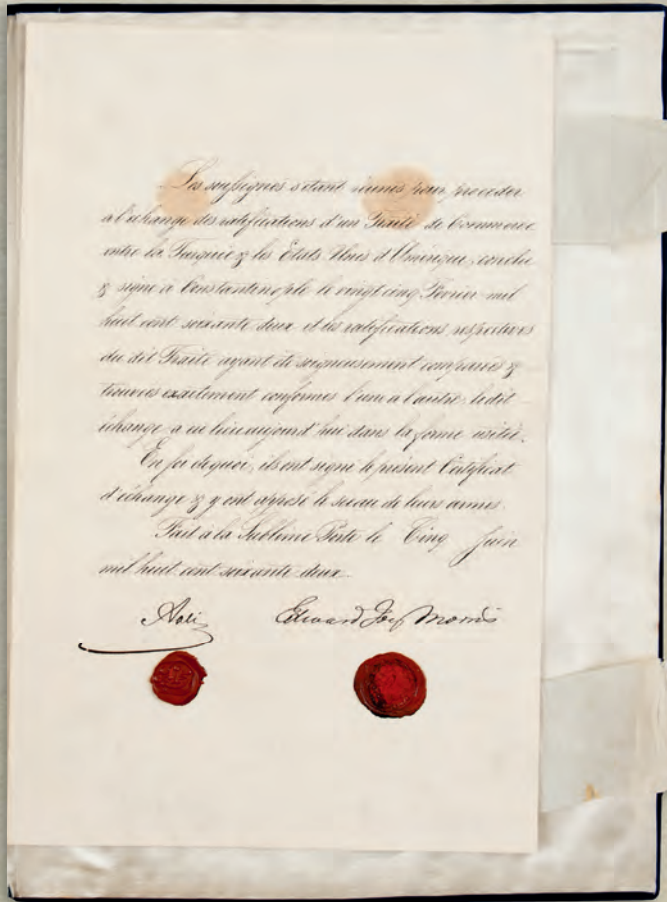 Les soussignés s'étant réunis pour proceder
a l'echange des ratifications d'un Traité de Commerce
entre la Turquie & les États Unis d'Amérique, conclu
& signé à Constantinople le vingt cinq Fevrier mil
huit cent soixante deux et les ratifications respectives
du dit Traité ayant été soigneusement comparées &
trouvées exactement conformes l'une a l'autre, le dit
échange a eu lieu aujourd'hui dans la forme usitée.
En foi de quoi, ils ont signé le présent Certificat
d'échange & y ont apposé le sceau de leurs armes.
Fait a la Sublime Porte le Cinq Juin
mil huit cent soixante deux.
Aali Edward Joy Morris